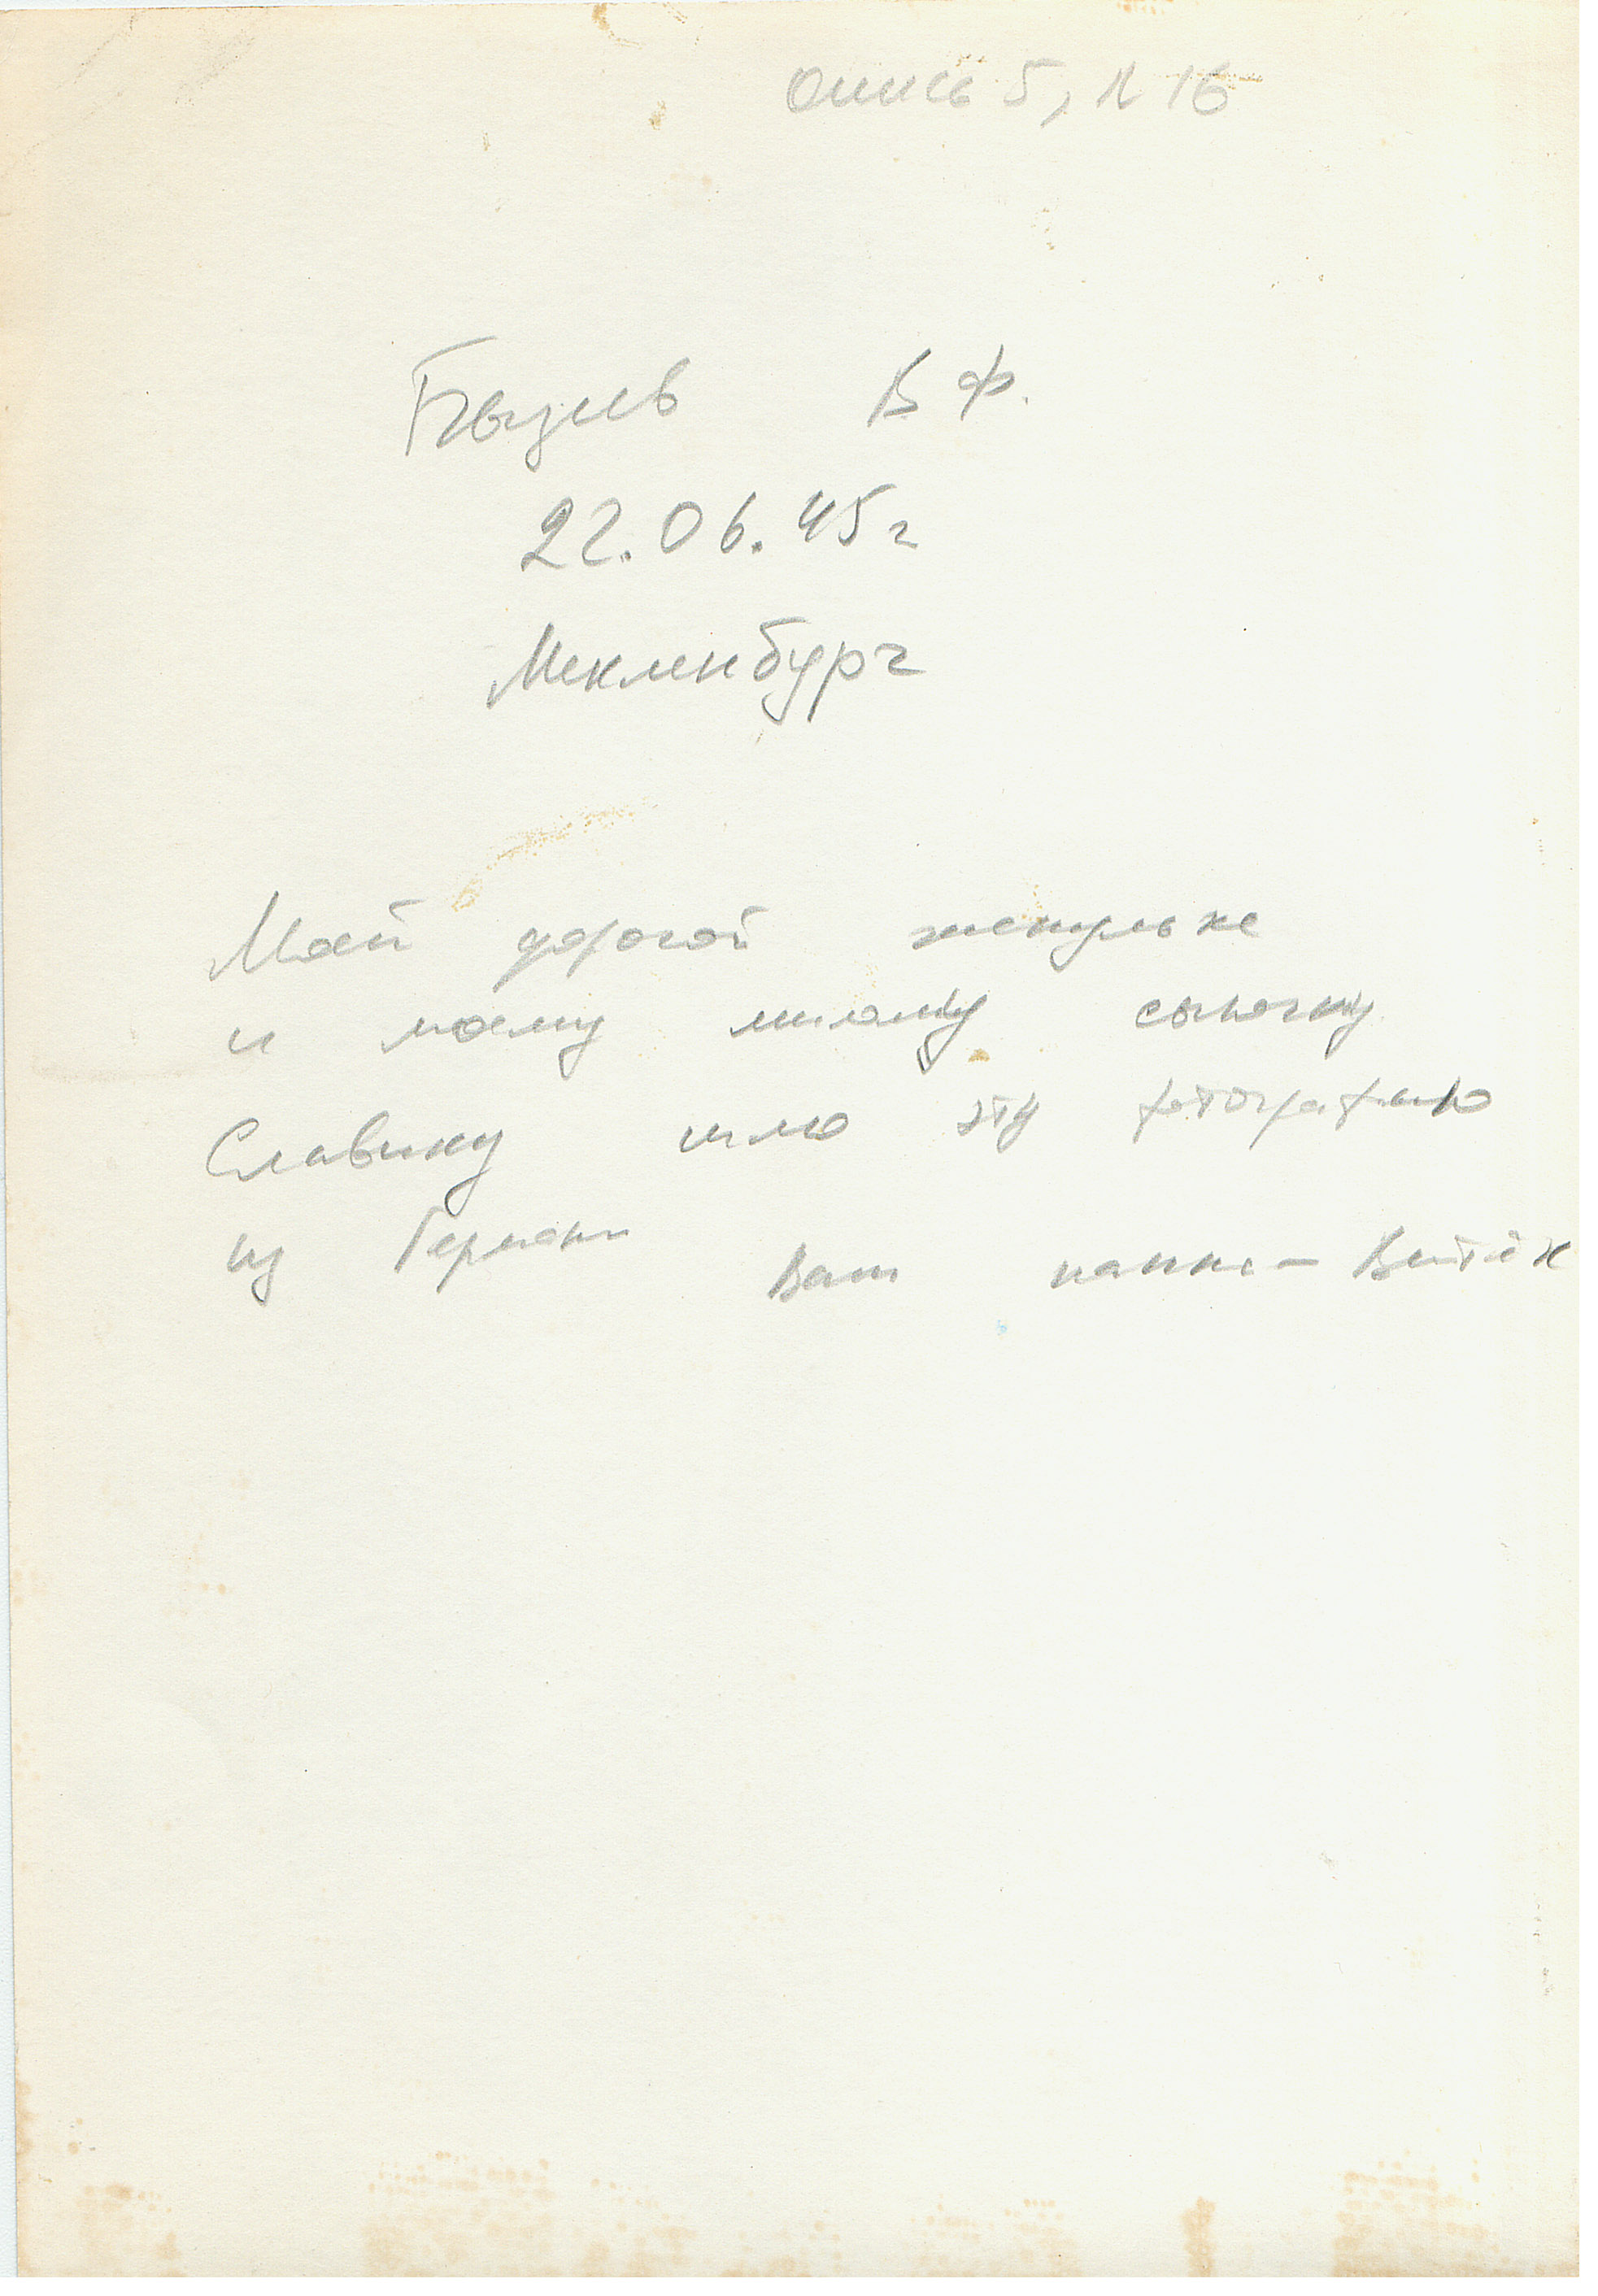 опись 5, л 16
В Ф.
22.06.45г
Мекленбург
Моей дорогой женульке
и моему милому сыночку
Славику шлю эту фотографию
из Германи
Ваш папка - Витёк